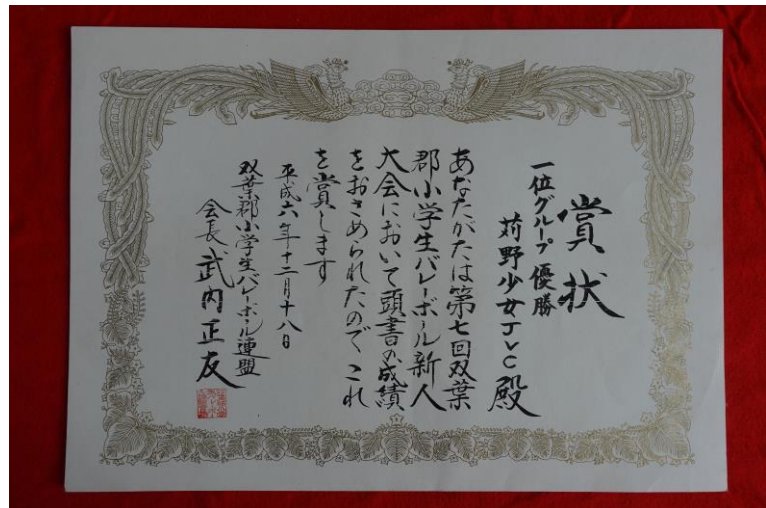 賞状
一位グループ優勝
苅野少女JVC殿
あなたがたは第七回双葉
郡小学生バレーボール新人
大会において頭書の成績
をおさめられたのでこれ
を賞します
平成六年十二月十八日
双葉郡小学生バレーボール連盟
会長武内正友